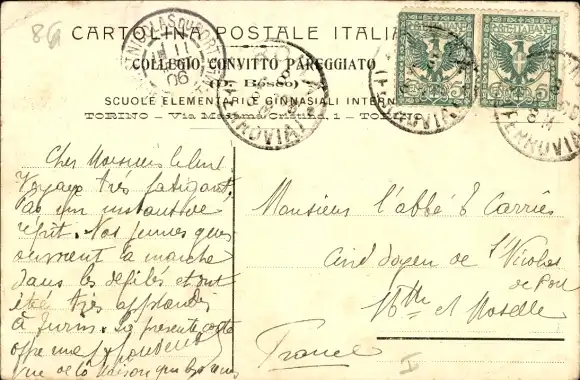 86
CARTOLINA POSTALE ITALIANA
COLLEGIO CONVITTO PAREGGIATO
(D. Bosco)
SCUOLE ELEMENTARI E GINNASIALI INTERNE
TORINO - Via Madama Cristina, 1 - TORINO
NICOLAS DU PORT
11
06
FERROVIA
FERROVIA
FERROVIA
Cher Monsieur le Curé
Voyage très fatigant,
pas un instant de
répit. Nos jeunes gens
ouvrent la marche
dans les défilés et ont
été très applaudis
à Turin. La présente carte
offre une
vue de la maison qui
Monsieur l'abbé Carriès
Curé doyen de St Nicolas
de Port
Mthe et Moselle
France